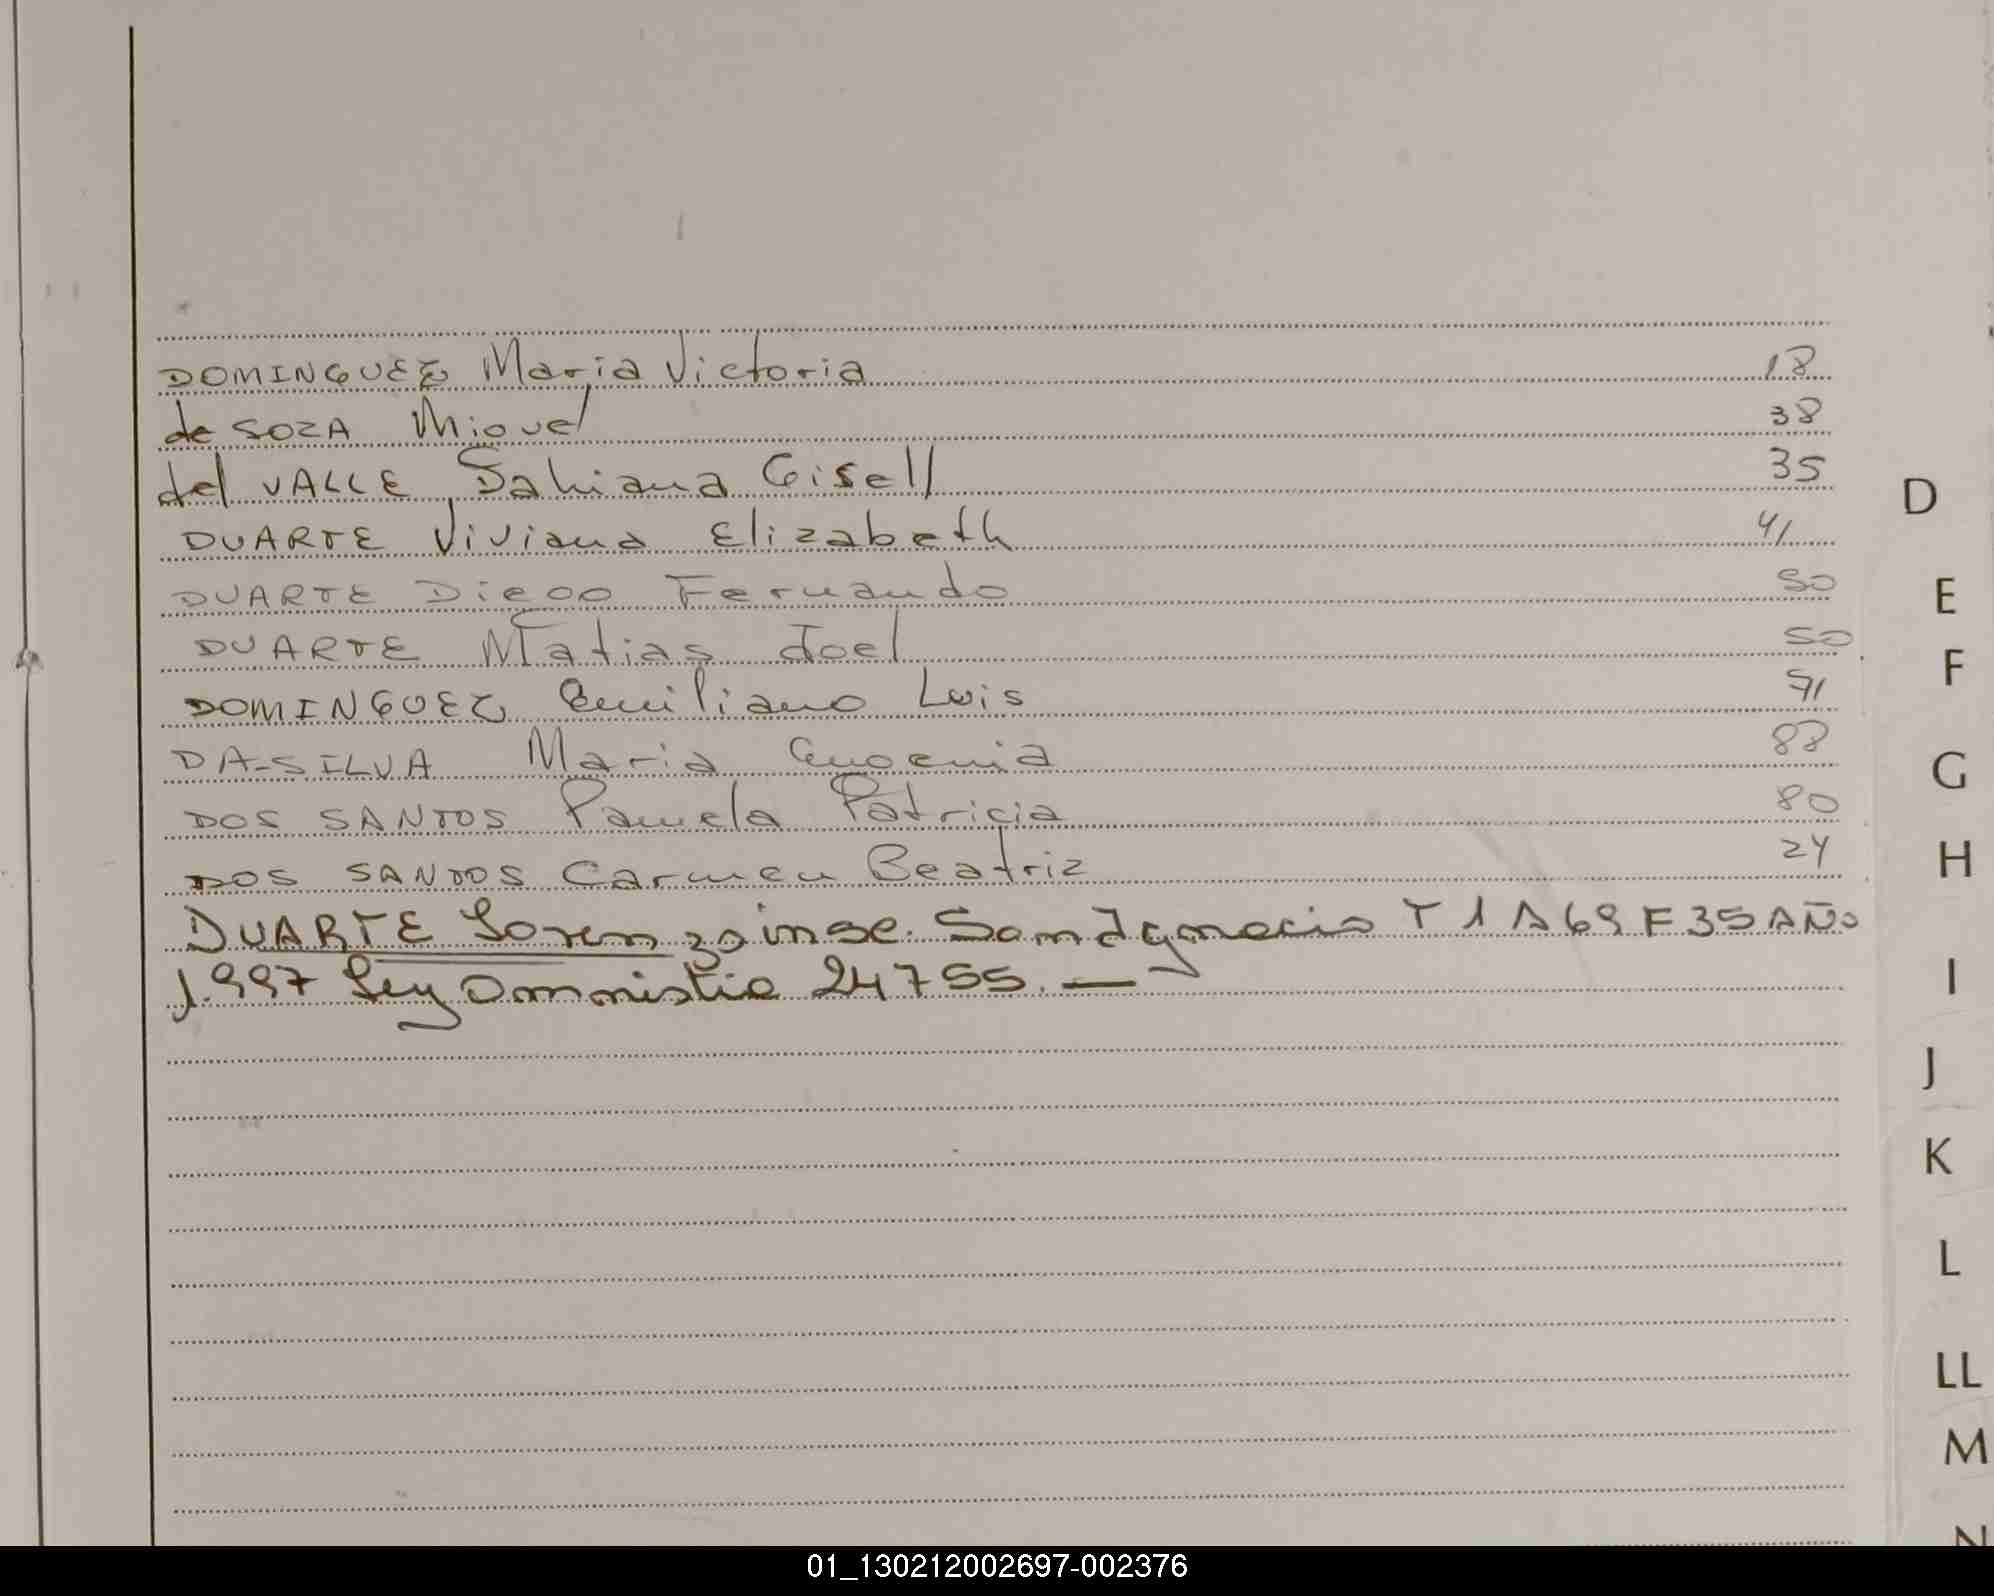 DOMINGUEZ Maria Victoria 18
de SOZA Miguel 38
del VALLE Dahiana Gisell 35
DUARTE Viviana Elizabeth 41
DUARTE Diego Fernando 50
DUARTE Matias Joel 50
DOMINGUEZ Emiliano Luis
DA-SILVA Maria Eugenia 88
DOS SANTOS Pamela Patricia 80
DOS SANTOS Carmen Beatriz 24
DUARTE Lorenzo insc. San Ygnacio T 1 A 69 F 35 AÑO
1.997 Ley Amnistia 24755. —
D
E
F
G
H
I
J
K
L
LL
M
N
01_130212002697-002376